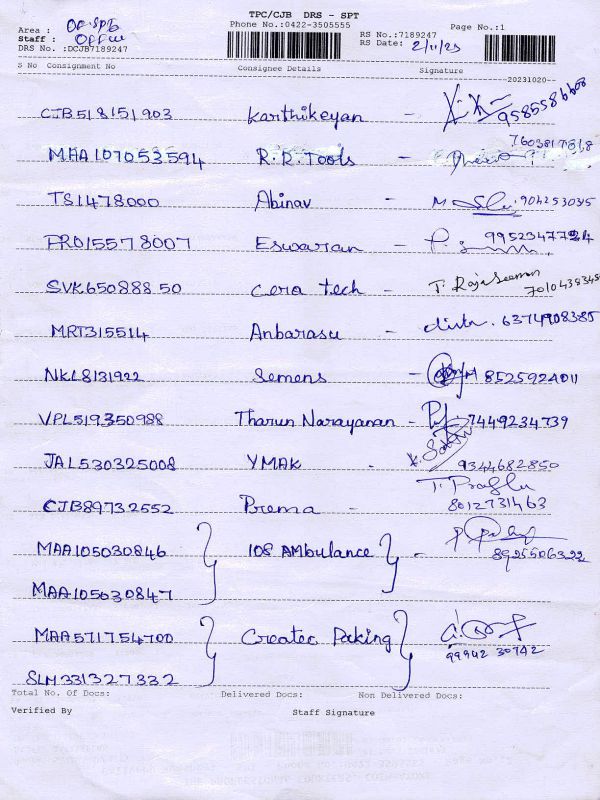 TPC/CJB DRS - SPT
Phone No.:0422-3505555
Page No.:1
Area : OF-SPB
Staff : Office
DRS No. :DCJB7189247
RS No.:7189247
RS Date: 2/11/23
S No Consignment No Consignee Details Signature
20231020
CJB518151903 Karthikeyan - 9585586608
MAA107053594 R.R.Tools - 7603817818
TS1478000 Abinav - 904253035
PRO15578007 Eswaran - 9952347724
SVK650888 50 Cera tech - T. Rajaseeman
7010438348
MRT315514 Anbarasu - 6374908385
NKL8131922 Semens - 8525924011
VPL519350988 Tharun Narayanan - 7449234739
JAL530325008 YMAK - 9344682850
CJB89732552 Prema - T. Prabhu
8012731463
MAA105030846 108 AMbulance -
8925506322
MAA105030847
MAA571754700 Createc Packing
99942 30742
SLM331327332
Total No. Of Docs: Delivered Docs: Non Delivered Docs:
Verified By Staff Signature